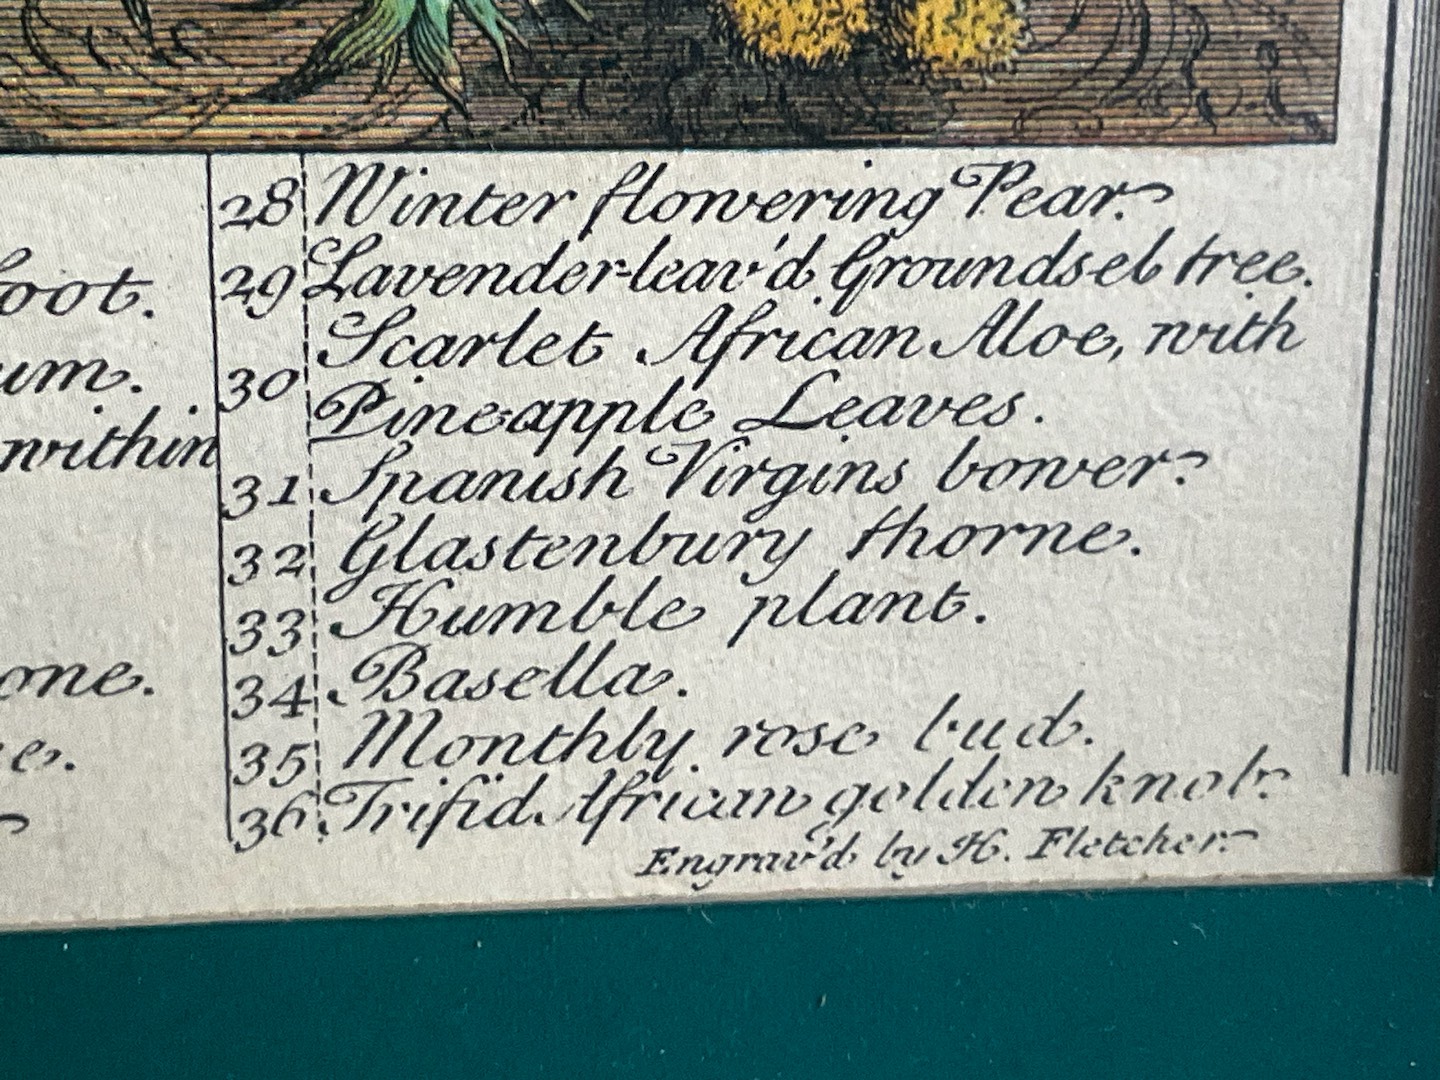 oot.
um.
within
one.
e.
28 Winter flowering Pear.
29 Lavender-leav'd Groundsel tree.
30 Scarlet African Aloe, with
Pineapple Leaves.
31 Spanish Virgins bower.
32 Glastenbury thorne.
33 Humble plant.
34 Basella.
35 Monthly rose bud.
36 Trifid African golden knob.
Engrav'd by H. Fletcher.